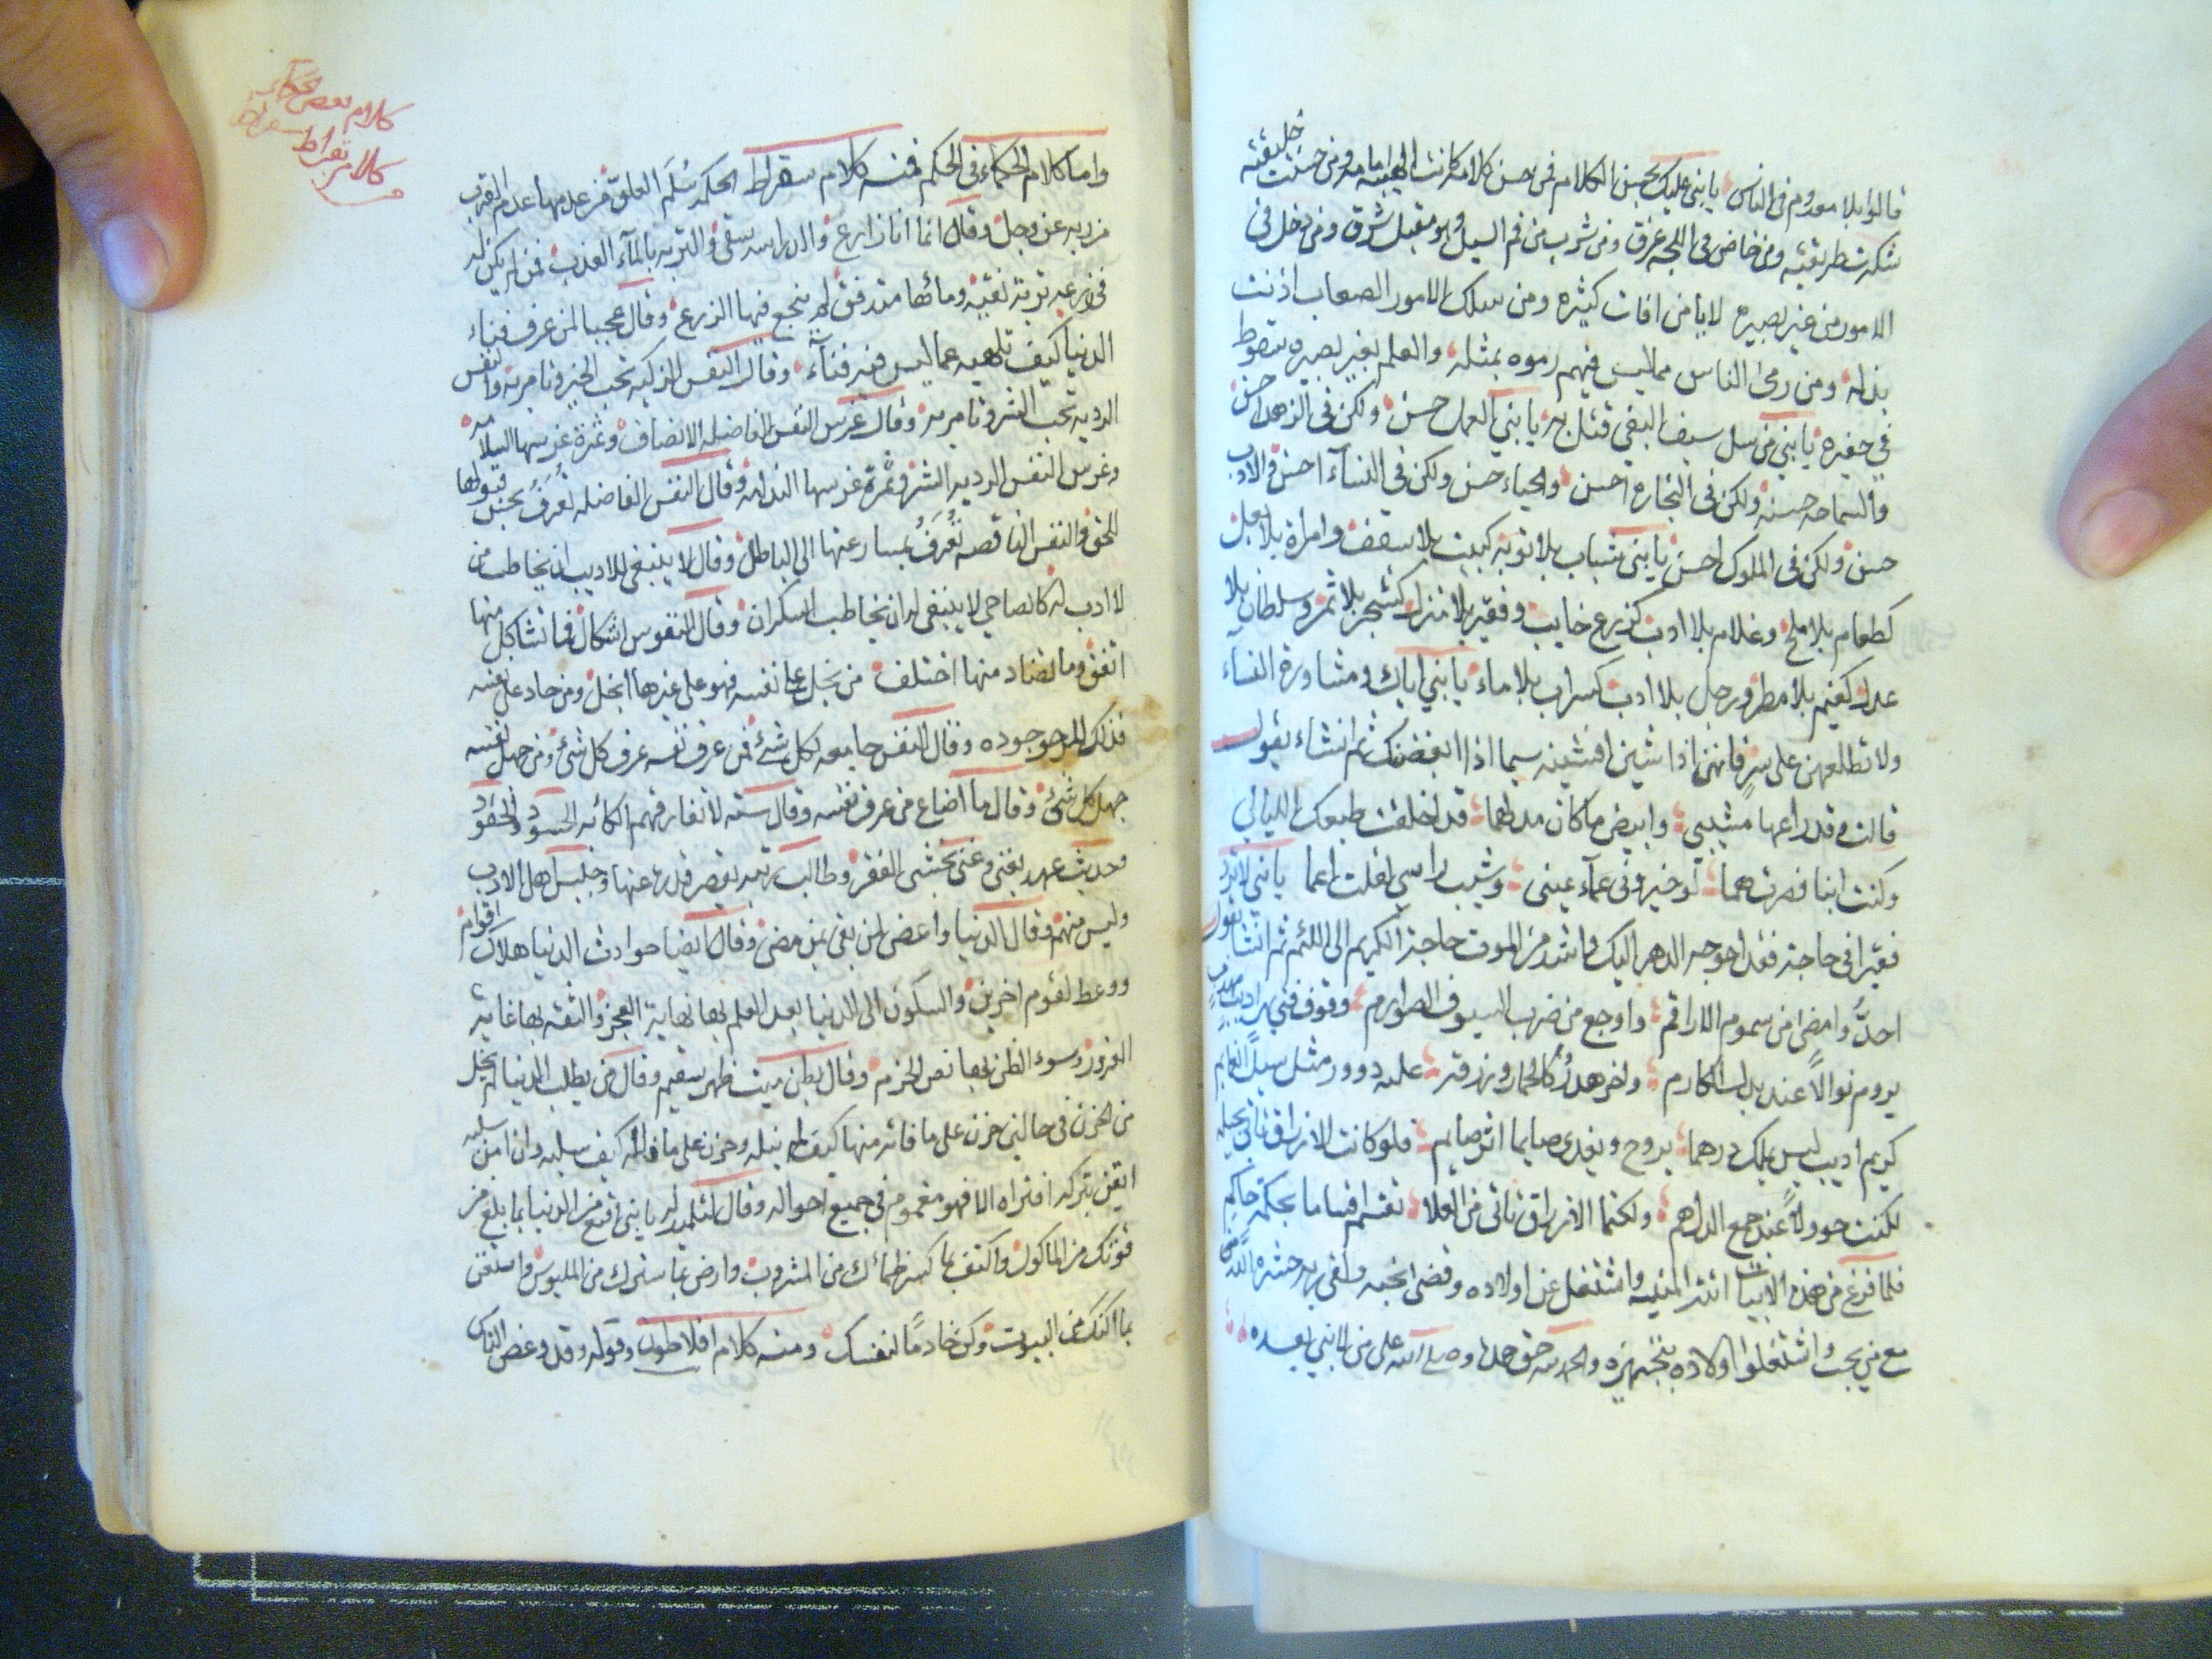 قالوا بلا معدوم في الناس يا بني عليك بحسن الكلام فمن حسن كلامه كانت الهيبه امامه ومن حسنت خليقته
شكرت طريقته ومن خاض في اللجه غرق ومن شرب من فم السيل وهو مقبل شرق ومن دخل في
الامور من غير بصيره لا يامن افات كثيره ومن سلك الامور الصعاب اذنت
بذله ومن رمى الناس مما ليس فيهم رموه بمثله والعلم بغير بصيره سقوط
في حفيره يا بني من سل سيف البغي قتل به يا بني العمل حسن ولكن في الزهد احسن
والسماحه حسنه ولكن في التجاره احسن والحياء حسن ولكن في النساء احسن والادب
حسن ولكن في الملوك احسن يا بني شباب بلا توبه كبيت بلا سقف وامراة بلا بعل
كطعام بلا ملح وغلام بلا ادب كزرع خايب وفقير بلا منزل كشجر بلا ثمر وسلطان بلا
عدل كغيم بلا مطر ورجل بلا ادب كسراب بلا ماء يا بني اياك ومشاورة النساء
ولا تطلعهن على سر فانهن اذا شين افشينه سيما اذا ابغضنك ثم انشاء يقول
قالت وقد راعها مشيبي وابيض ما كان مدلهما قد اخلقت طبعك الليالي
وكنت ابنا فصرت عما لو خير في عماء عيني وشيب راسي لقلت اعما يا بني لا ترد
فقيرا في حاجته فقد احوجه الدهر اليك واشد من الموت حاجة الكريم الى اللئيم ثم انشا يقول
احدّ وامضى من سموم الاراقم واوجع من ضرب السيوف الصوارم وقوف فتى بر اديب مهذب
يروم نوالا عند بذل المكارم واخر هدر كالحمار ورزقه عليه دوور مثل سيل الغمايم
كريم اديب ليس يملك درهما يروح ويغدى صايما اثر صايم فلو كانت الارزاق تاتي بحيله
لكنت حوولا عند جمع الدراهم ولكنما الارزاق تاتي من العلا تقسم اقساما بحكمة حاكم
فلما فرغ من هذه الابيات اتته المنيه واشتغل عن اولاده وقضى نحبه ولقي ربه حشره الله
مع من يحب واشتغلوا اولاده بتجهيزه والحمد لله حق حمده وصلى الله على من لا نبي بعده
كلام بعض الحكماء
كلام سقراط
كلام بقراط
واما كلام الحكماء في الحكم فمنه كلام سقراط الحكمه سُلّم العلو فمن عدمها عدم القرب
من ربه عز وجل وقال انما انا زارع والدراسه سقي والتربه بالماء العذب فمن لم يكن له
في زرعه تربة نقيه وماؤها متدفق لم ينجع فيها الزرع وقال عجبا لمن عرف فناء
الدنيا كيف تلهيه عما ليس فيه فناء وقال النفس الزكيه تحب الخير وتامر به والنفس
الرديه تحب الشر وتامر به وقال غرس النفس الفاضله الانصاف وثمرة غرسها السلامه
وغرس النفس الرديه الشر وثمرة غرسها الندامه وقال النفس الفاضله تُعرف بحسن قبولها
للحق والنفس الناقصه تُعرف بمسارعتها الى الباطل وقال لا ينبغي للاديب ان يخاطب من
لا ادب له كالصاحي لا ينبغي له ان يخاطب السكران وقال النفوس اشكال فما تشاكل منها
اتفق وما تضاد منها اختلف من بخل على نفسه فهو على غيرها ابخل ومن جاد على نفسه
فذلك المرجو جوده وقال النفس جامعه لكل شئ فمن عرف نفسه عرف كل شئ ومن جهل نفسه
جهل كل شئ وقال ما اضاع من عرف نفسه وقال سته لا تفارقهم الكآبه الحسود والحقود
وحديث عهد بغنى وغني يخشى الفقر وطالب رتبه يقصر قدره عنها وجليس اهل الادب
وليس منهم وقال الدنيا واعض لمن بقي بمن مضى وقال ايضا حوادث الدنيا هلاك اقوام
ووعظ لقوم اخرين والسكون الى الدنيا بعد العلم بها نهاية العجز والثقه بها غاية
الغرور وسوء الظن بها نص الحزم وقال بطن ميت ظهر سقيم وقال من يطلب الدنيا لم يخل
من الحزن في حالين حزن على ما فاته منها كيف لم ينله وحزن على ما ناله كيف سلبه وان امن سلبه
ايقن بتركه افتراه الا فهو مغموم في جميع احواله وقال لتلميذ له يا بني اقنع من الدنيا بما بلغ من
قوتك من الماكول واكتف بما كسر ظمائك من المشروب وارض بما سترك من الملبوس واستغن
بما اكنك من البيوت وكن خادماً لنفسك ومنه كلام افلاطون وقوله وقد وعض الناس